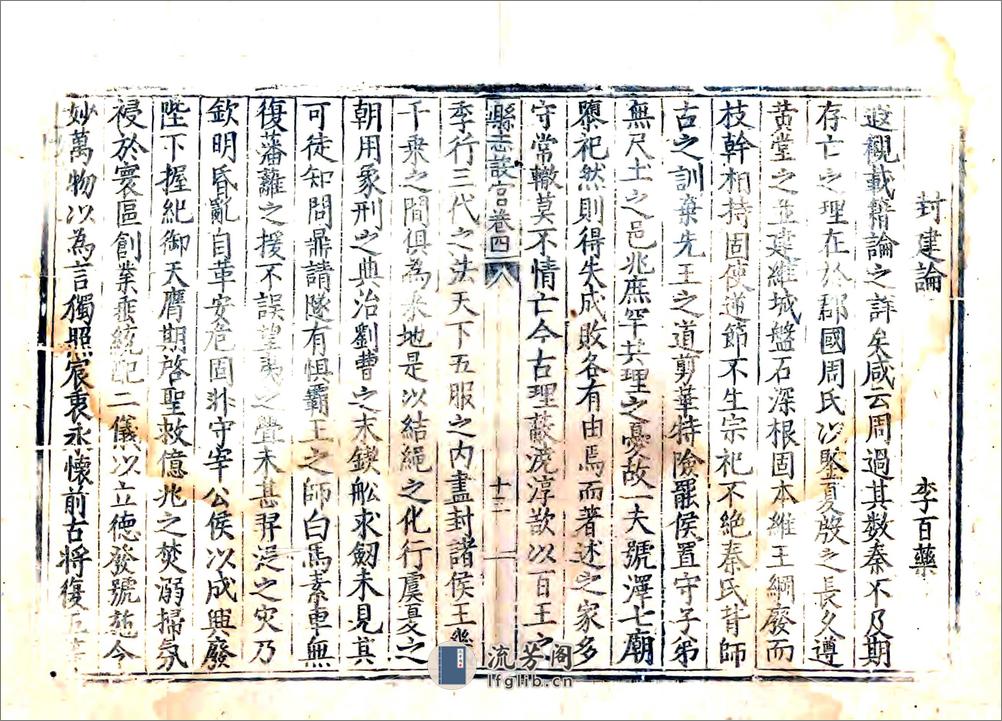 封建論 李百藥
遐觀載籍論之詳矣咸云周過其數秦不及期
存亡之理在於郡國周氏以鑒夏殷之長久遵
黄堂之並建維城盤石深根固本維王綱廢而
枝幹相持固使道節不生宗祀不絕秦氏昔師
古之訓棄先王之道剪華特險罷侯置守子弟
無尺土之邑兆庶罕共理之憂故一夫號澤七廟
隳祀然則得失成敗各有由焉而著述之家多
守常轍莫不情亡今古理蔽澆淳欲以百王之
縣志設宫卷四 十三
季行三代之法天下五服之内盡封諸侯王
千乗之間俱為采地是以結繩之化行虞夏之
朝用象刑之典治劉曹之末鍥舩求劒未見其
可徒知問鼎請隧有懼霸王之師白馬素車無
復藩籬之援不誤望夷之舋未甚羿浞之灾乃
欽明昏亂自革安危固非守宰公侯以成興廢
陛下握紀御天膺期啓聖救億兆之焚溺掃氛
祲於寰區創業垂統配二儀以立德發號施令
妙萬物以為言獨照宸衷永懷前古將復五等
流芳阁
lfglib.cn